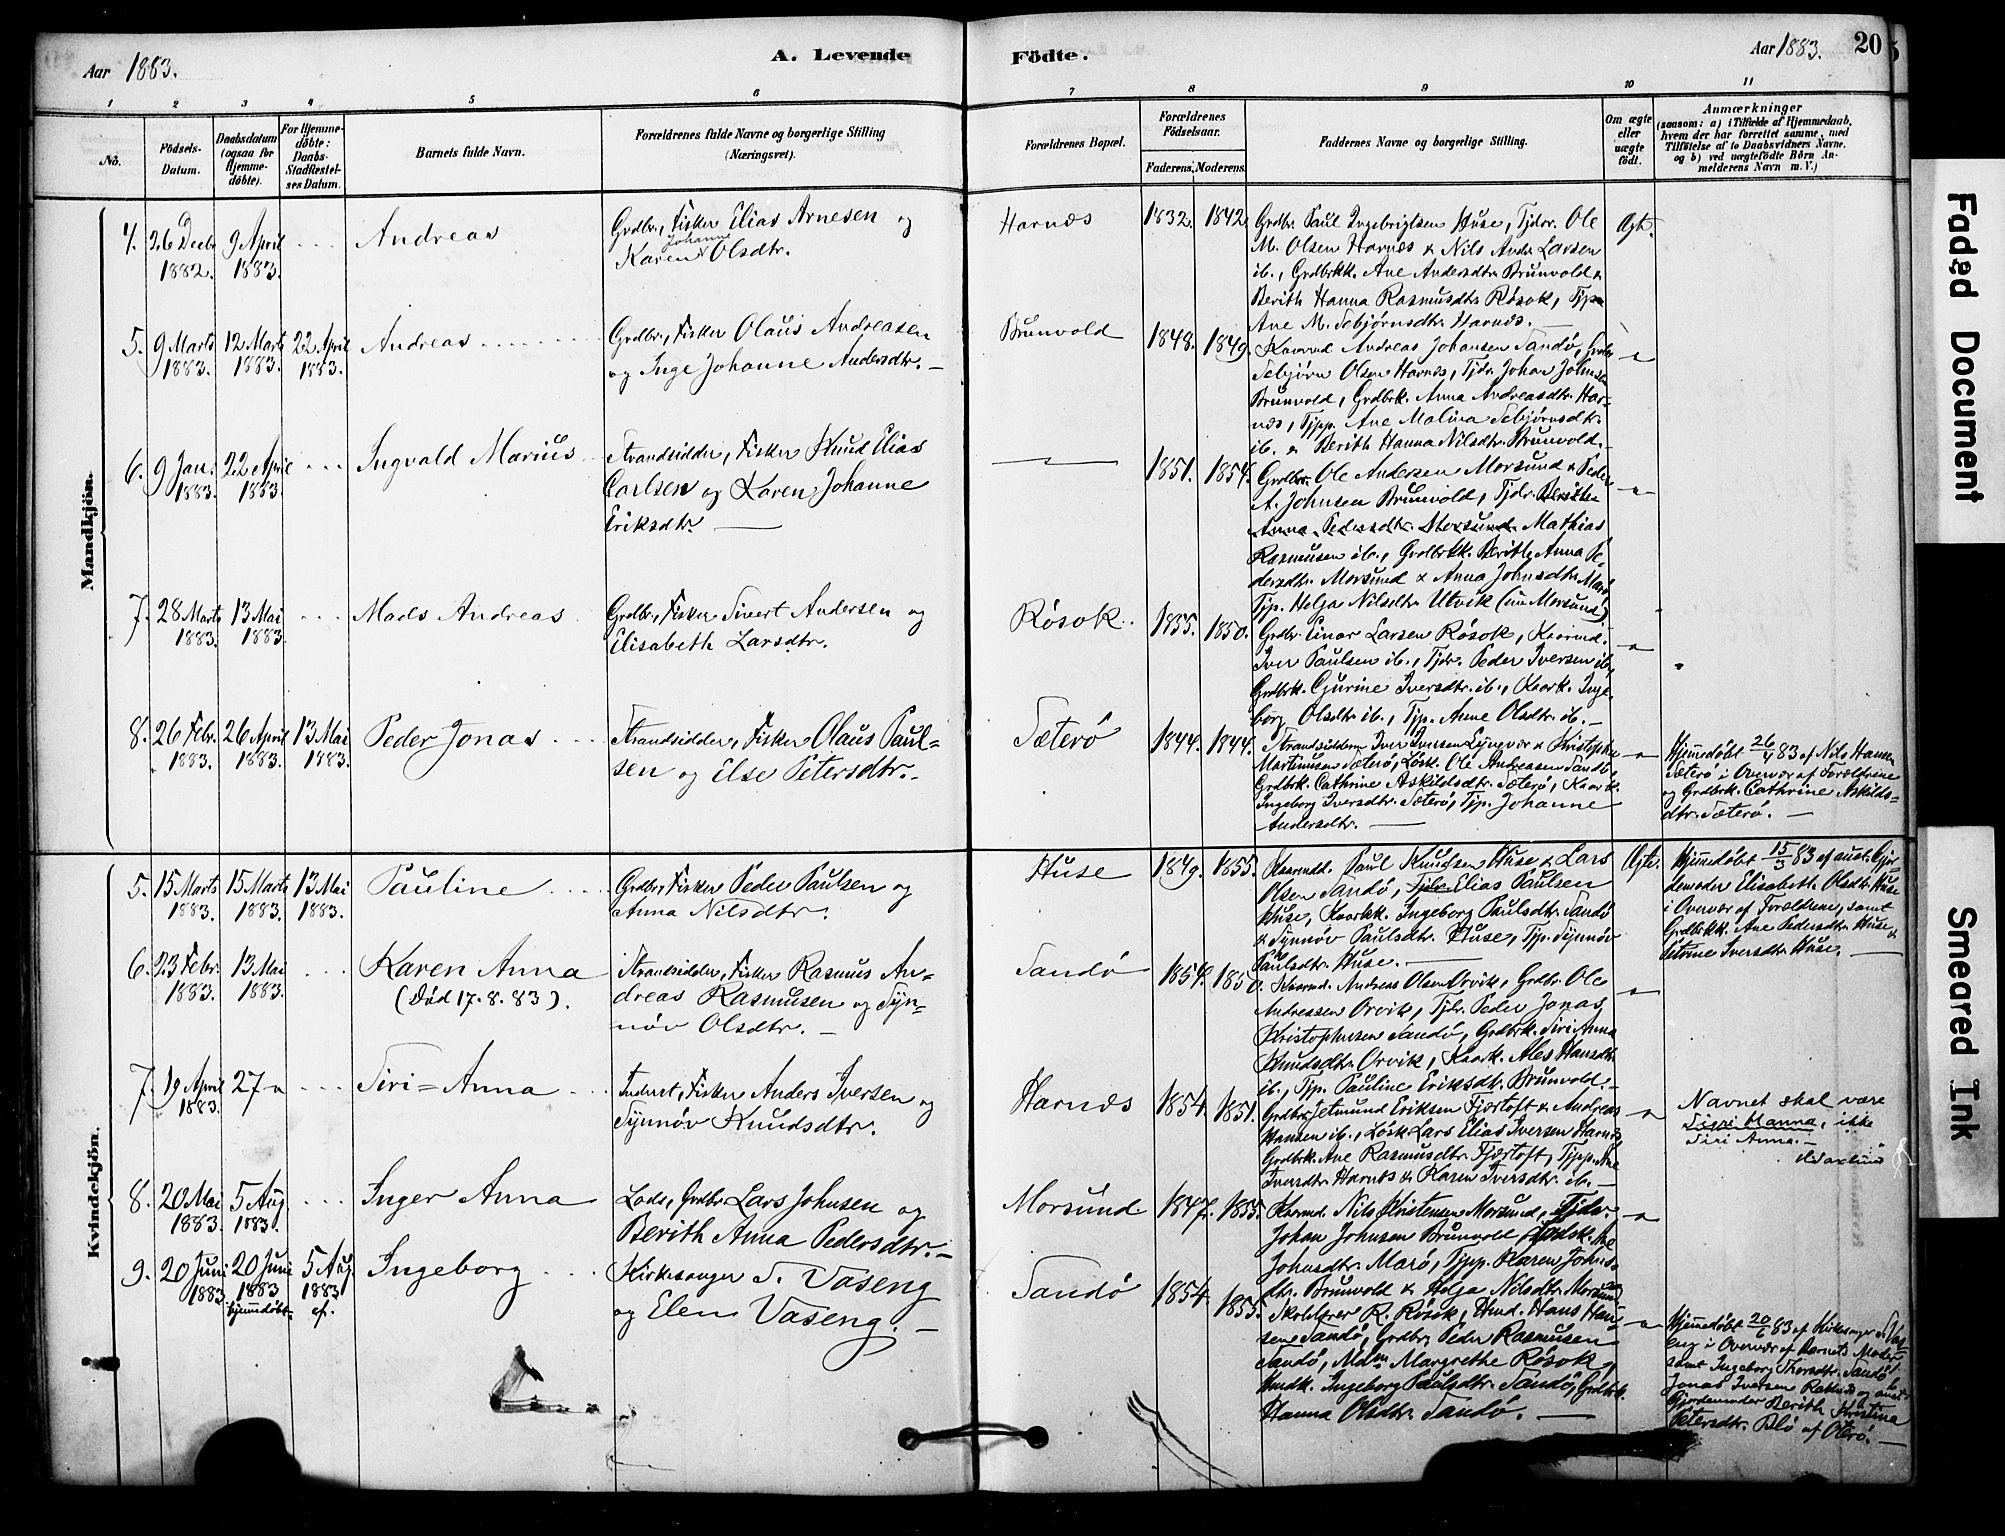 Aar 1883.
A. Levende
Födte.
Aar 1883.
20
1
2
3
4
5
6
7
8
9
10
11
No.
Födsels-
Datum.
Daabsdatum
(ogsaa for
Hjemme-
döbte).
For Hjemme-
döbte:
Daabs-
Stadfæstel-
ses Datum.
Barnets fulde Navn.
Forældrenes fulde Navne og borgerlige Stilling
(Næringsvei).
Forældrenes Bopæl.
Forældrenes
Födselsaar.
Faderens.
Moderens.
Faddernes Navne og borgerlige Stilling.
Om ægte
eller
uægte
födt.
Anmærkninger
(saasom: a) i Tilfælde af Hjemmedaab,
hvem der har forrettet samme, med
Tilföielse af to Daabsvidners Navne,
og b) ved uægtefödte Börn An-
melderens Navn m. V.)
Mandkjön.
4. 26 Decbr 1882. 9 April 1883. Andreas
Grdbr., Fisker Elias Arnesen og
Karen Johanne Olsdtr.
Harnæs 1832. 1842.
Grdbr. Paul Ingebrigtsen Huse, Tjdr. Ole
M. Olsen Harnæs & Nils Andr. Larsen
ib., Grdbrkk. Ane Andersdtr. Brunvold &
Berith Hanna Rasmusdtr. Røsok, Tjp.
Ane M. Sebjørnsdtr. Harnæs.
Ægte.
5. 9 Marts 1883. 12 Marts 1883. 22 April 1883. Andreas
Grdbr., Fisker Olaus Andreasen
og Inge Johanne Andersdtr.
Brunvold 1848. 1849.
Andreas Johansen Sandø, Grdbr.
Sebjørn Olsen Harnæs, Tjdr. Johan Johnsen
Brunvold, Grdbrk. Anna Andreasdtr. Har-
næs, Tjpp. Ane Malina Sebjørnsdtr.
ib. & Berith Hanna Nilsdtr. Brunvold.
6. 9 Jan. 1883. 22 April 1883. Ingvald Marius
Strandsidder, Fisker Knud Elias
Carlsen og Karen Johanne
Eriksdtr.
1851. 1854.
Grdbr. Ole Andersen Morsund & Peder
A. Johnsen Brunvold, Tjdr.
Anna Pedersdtr. Morsund Mathias
Rasmusen ib., Grdbrkk. Berith Anna Pe-
dersdtr. Morsund & Anna Johnsdtr. Marø,
Tjp. Helga Nilsdtr. Utvik (nu Morsund)
7. 28 Marts 1883. 13 Mai 1883. Mads Andreas
Grdbr., Fisker Sivert Andersen og
Elisabeth Larsdtr.
Røsok. 1855. 1850.
Grdbr. Einar Larsen Røsok,
Iver Paulsen ib., Tjdr. Peder Iversen ib,
Grdbrk. Gjurine Iversdtr. ib., Inge-
borg Olsdtr. ib., Tjp. Anne Olsdtr. ib.
8. 26 Febr. 1883. 26 April 1883. 13 Mai 1883. Peder Jonas
Strandsidder, Fisker Olaus Paul=
sen og Else Petersdtr.
Sæterø 1844. 1844.
Strandsiddern Iver Iversen Lyngvær & Kristopher
Martinusen Sæterø, Løsk. Ole Andreasen Sandø,
Grdbrk. Cathrine Askildsdtr. Sæterø,
Ingeborg Iversdtr. Sæterø, Tjp. Johanne
Andersdtr.
Hjemmedøbt 26/4 83 af Nils Hansen
Sæterø i Overvær af Forældrene
og Grdbrk. Cathrine Askilds=
dtr. Sæterø.
Kvindekjön.
5. 15 Marts 1883. 15 Marts 1883. 13 Mai 1883. Pauline
Grdbr., Fisker Peder Paulsen og
Anna Nilsdtr.
Huse 1849. 1855.
Paul Knudsen Huse & Lars
Olsen Sandø, Tjdr. Elias Paulsen
Huse, Ingeborg Paulsdtr. Sandø
& Synnøv Paulsdtr. Huse, Tjp. Synnøv
Paulsdtr. Huse.
Ægte.
Hjemmedøbt 15/3 83 af aust. Gjor-
demoder Elisabeth Olsdtr. Huse
i Overvær af Forældrene, samt
Grdbrkk. Ane Pedersdtr. Huse &
Petrine Iversdtr. Huse.
6. 23 Febr. 1883. 13 Mai 1883. Karen Anna
(Død 17.8.83).
Strandsidder, Fisker Rasmus An-
dreas Rasmusen og Syn-
nøv Olsdtr.
Sandø 1854. 1850.
Andreas Olsen Orvik, Grdbr. Ole
Andreassen Orvik, Tjdr. Peder Jonas
Kristophersen Sandø, Grdbrk. Siri Anna
Knudsdtr. Orvik, Ales Hansdtr.
ib., Tjp. Pauline Eriksdtr. Brunvold.
7. 19 April 1883. 27 Siri=Anna
Inderst, Fisker Anders Iversen og
Synnøv Knudsdtr.
Harnæs 1854. 1851.
Grdbr. Jetmund Eriksen Fjærtoft & Andreas
Hansen ib., Løsk. Lars Elias Iversen Harnæs,
Grdbrk. Ane Rasmusdtr. Fjærtoft, Tjpp. Ane
Iversdtr. Harnæs & Karen Iversdtr. ib.
Navnet skal være
Siri Hanna, ikke
Siri Anna.
8. 20 Mai 1883. 5 Aug. 1883. Inger Anna
Lods, Grdbr. Lars Johnsen og
Berith Anna Pedersdtr.
Morsund 1847. 1855.
Nils Kristensen Morsund, Tjdr.
Johan Johnsen Brunvold, Ane
Johnsdtr. Marø, Tjpp. Karen Johns-
dtr. Brunvold & Helga Nilsdtr. Morsund
9. 20 Juni 1883. 20 Juni 1883 hjemmedøbt. 5 Aug. 1883 Ingeborg
Kirkesanger S. Vaseng
og Elen Vaseng.
Sandø 1854. 1855.
Skolelærer R. Røsok, Hmd. Hans Han-
sen Sandø, Grdbr. Peder Rasmusen
Sandø, Mdm Margrethe Røsok,
Hmdk. Ingeborg Paulsdtr. Sandø, Grdbrk.
Hanna Olsdtr. Sandø.
Hjemmedøbt 20/6 83 af Kirkesanger S. Vas-
eng i Overvær af Barnets Moder
samt Ingeborg Thorsdtr. Sandø,
Jonas Iversen og aust.
Gjordemoder Berith Kristina
Petersdtr. Blø af Oterø.
Faded Document
Smeared Ink